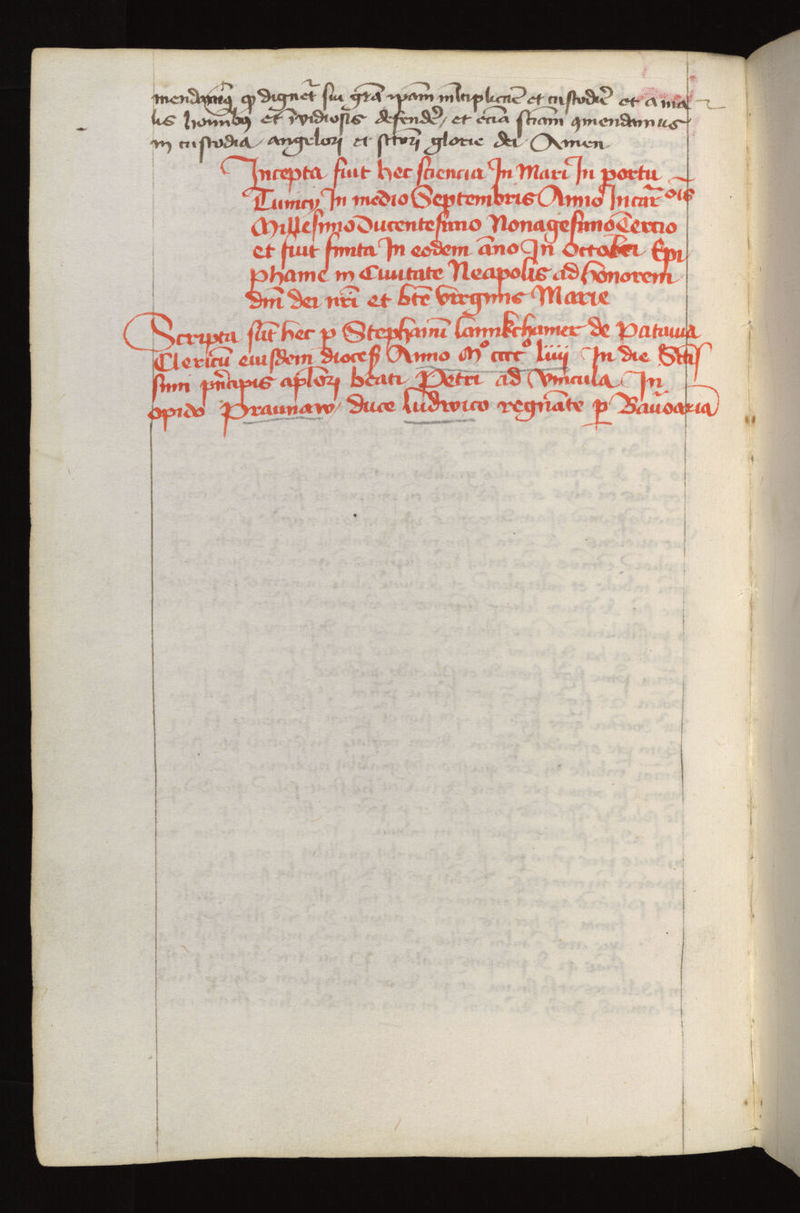 mendamus qꝫ dignet̄ sui grā ipam m̄ltiplicare et custodire et a ma
lis hominibꝯ et īvidiosis defendē et eciā sciam ꝯmendamus
in custodia angeloꝝ et sctoꝝ glorie dei Amen
Incepta fuit hec sciencia In Mari In portu
Tunicij In medio Septembris Anno Incar̄ois
Millesimo Ducentesimo Nonagesimo Tercio
et fuit finita In eodem āno In Octobri Epi
phanie in Civitate Neapolis ad honorem
dn̄i dei nr̄i et btē virginis Marie
Scripta sūt hec p Stephanū lannkchamer de Patauia
Clericū eiusdem dioceß Anno Mº ccccº liiij In die Scti
simi pn̄cipis aplōꝝ beati Petri ad vincula In
opido Praunaw duce ludwico regnāte p Bauoaria